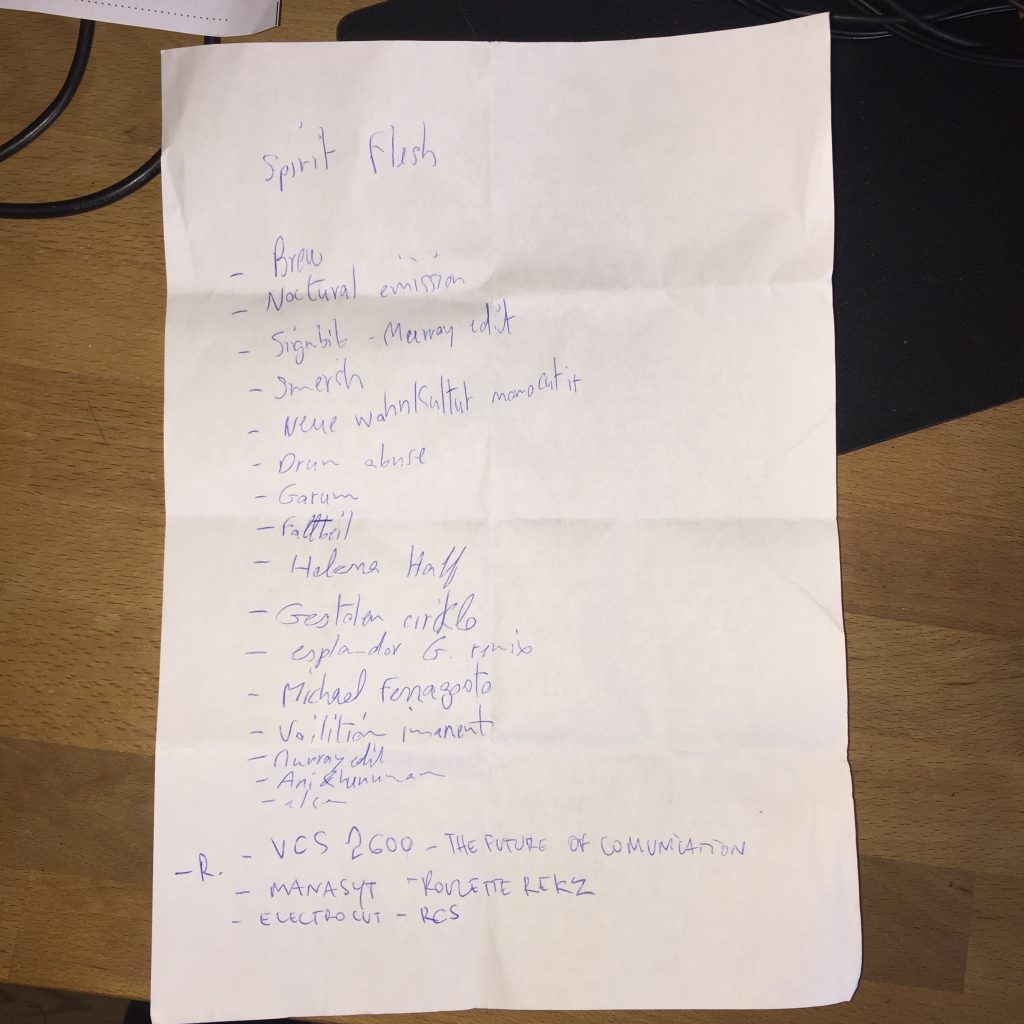 Spirit Flesh
- Brew
- Noctural emission
- Signbit - Murray edit
- Smerch
- Neue wahnkultut monocutit
- Drum abuse
- Garum
- Fallbeil
- Helena Hauff
- Gestalen cirklo
- esplendor G. remix
- Michael Ferragosto
- Voilitión imanent
- Murray edit
-
-
- VCS 2600 - THE FUTURE OF COMUNICATION
-R.
- MANASYT - ROULETTE REKZ
- ELECTRO CUT - RCS